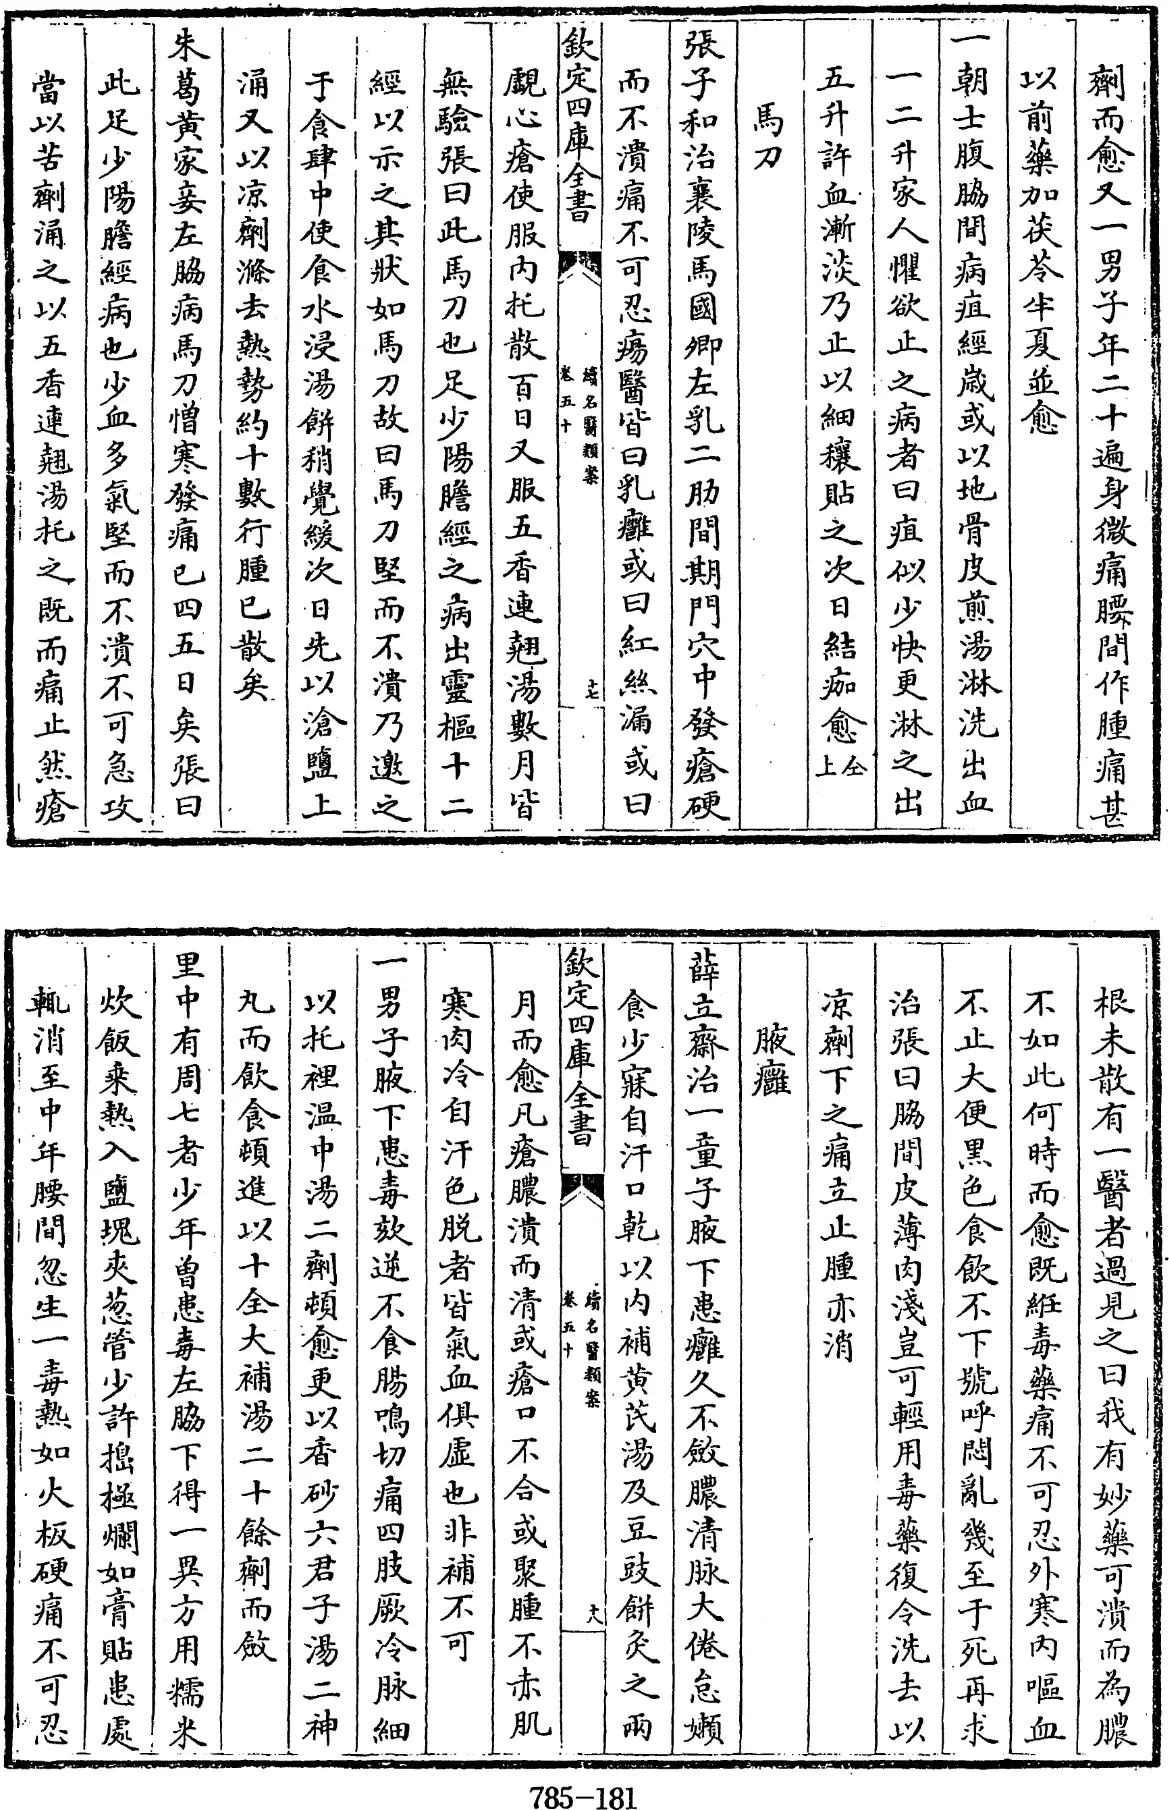 劑而愈又一男子年二十遍身微痛腰間作腫痛甚
以前藥加茯苓半夏並愈
一朝士腹脇間病疽經歲或以地骨皮煎湯淋洗出血
一二升家人懼欲止之病者曰疽似少快更淋之出
五升許血漸淡乃止以細穰貼之次日結痂愈仝上
馬刀
張子和治襄陵馬國卿左乳二肋間期門穴中發瘡硬
而不潰痛不可忍瘍醫皆曰乳癰或曰紅絲漏或曰
欽定四庫全書
續名醫類案
卷五十
十七
覷心瘡使服內托散百日又服五香連翹湯數月皆
無驗張曰此馬刀也足少陽膽經之病出靈樞十二
經以示之其狀如馬刀故曰馬刀堅而不潰乃邀之
于食肆中使食水浸湯餅稍覺緩次日先以滄鹽上
涌又以凉劑滌去熱勢約十數行腫已散矣
朱葛黃家妾左脇病馬刀憎寒發痛已四五日矣張曰
此足少陽膽經病也少血多氣堅而不潰不可急攻
當以苦劑涌之以五香連翹湯托之既而痛止然瘡
根未散有一醫者過見之曰我有妙藥可潰而為膿
不如此何時而愈既紝毒藥痛不可忍外寒內嘔血
不止大便黑色食飲不下號呼悶亂幾至于死再求
治張曰脇間皮薄肉淺豈可輕用毒藥復令洗去以
凉劑下之痛立止腫亦消
腋癰
薛立齋治一童子腋下患癰久不斂膿清脉大倦怠嬾
食少寐自汗口乾以內補黃芪湯及豆豉餅灸之兩
欽定四庫全書
續名醫類案
卷五十
十八
月而愈凡瘡膿潰而清或瘡口不合或聚腫不赤肌
寒肉冷自汗色脫者皆氣血俱虛也非補不可
一男子腋下患毒欬逆不食腸鳴切痛四肢厥冷脉細
以托裡溫中湯二劑頓愈更以香砂六君子湯二神
丸而飲食頓進以十全大補湯二十餘劑而斂
里中有周七者少年曾患毒左脇下得一異方用糯米
炊飯乘熱入鹽塊夾葱管少許搗極爛如膏貼患處
輒消至中年腰間忽生一毒熱如火板硬痛不可忍
785-181